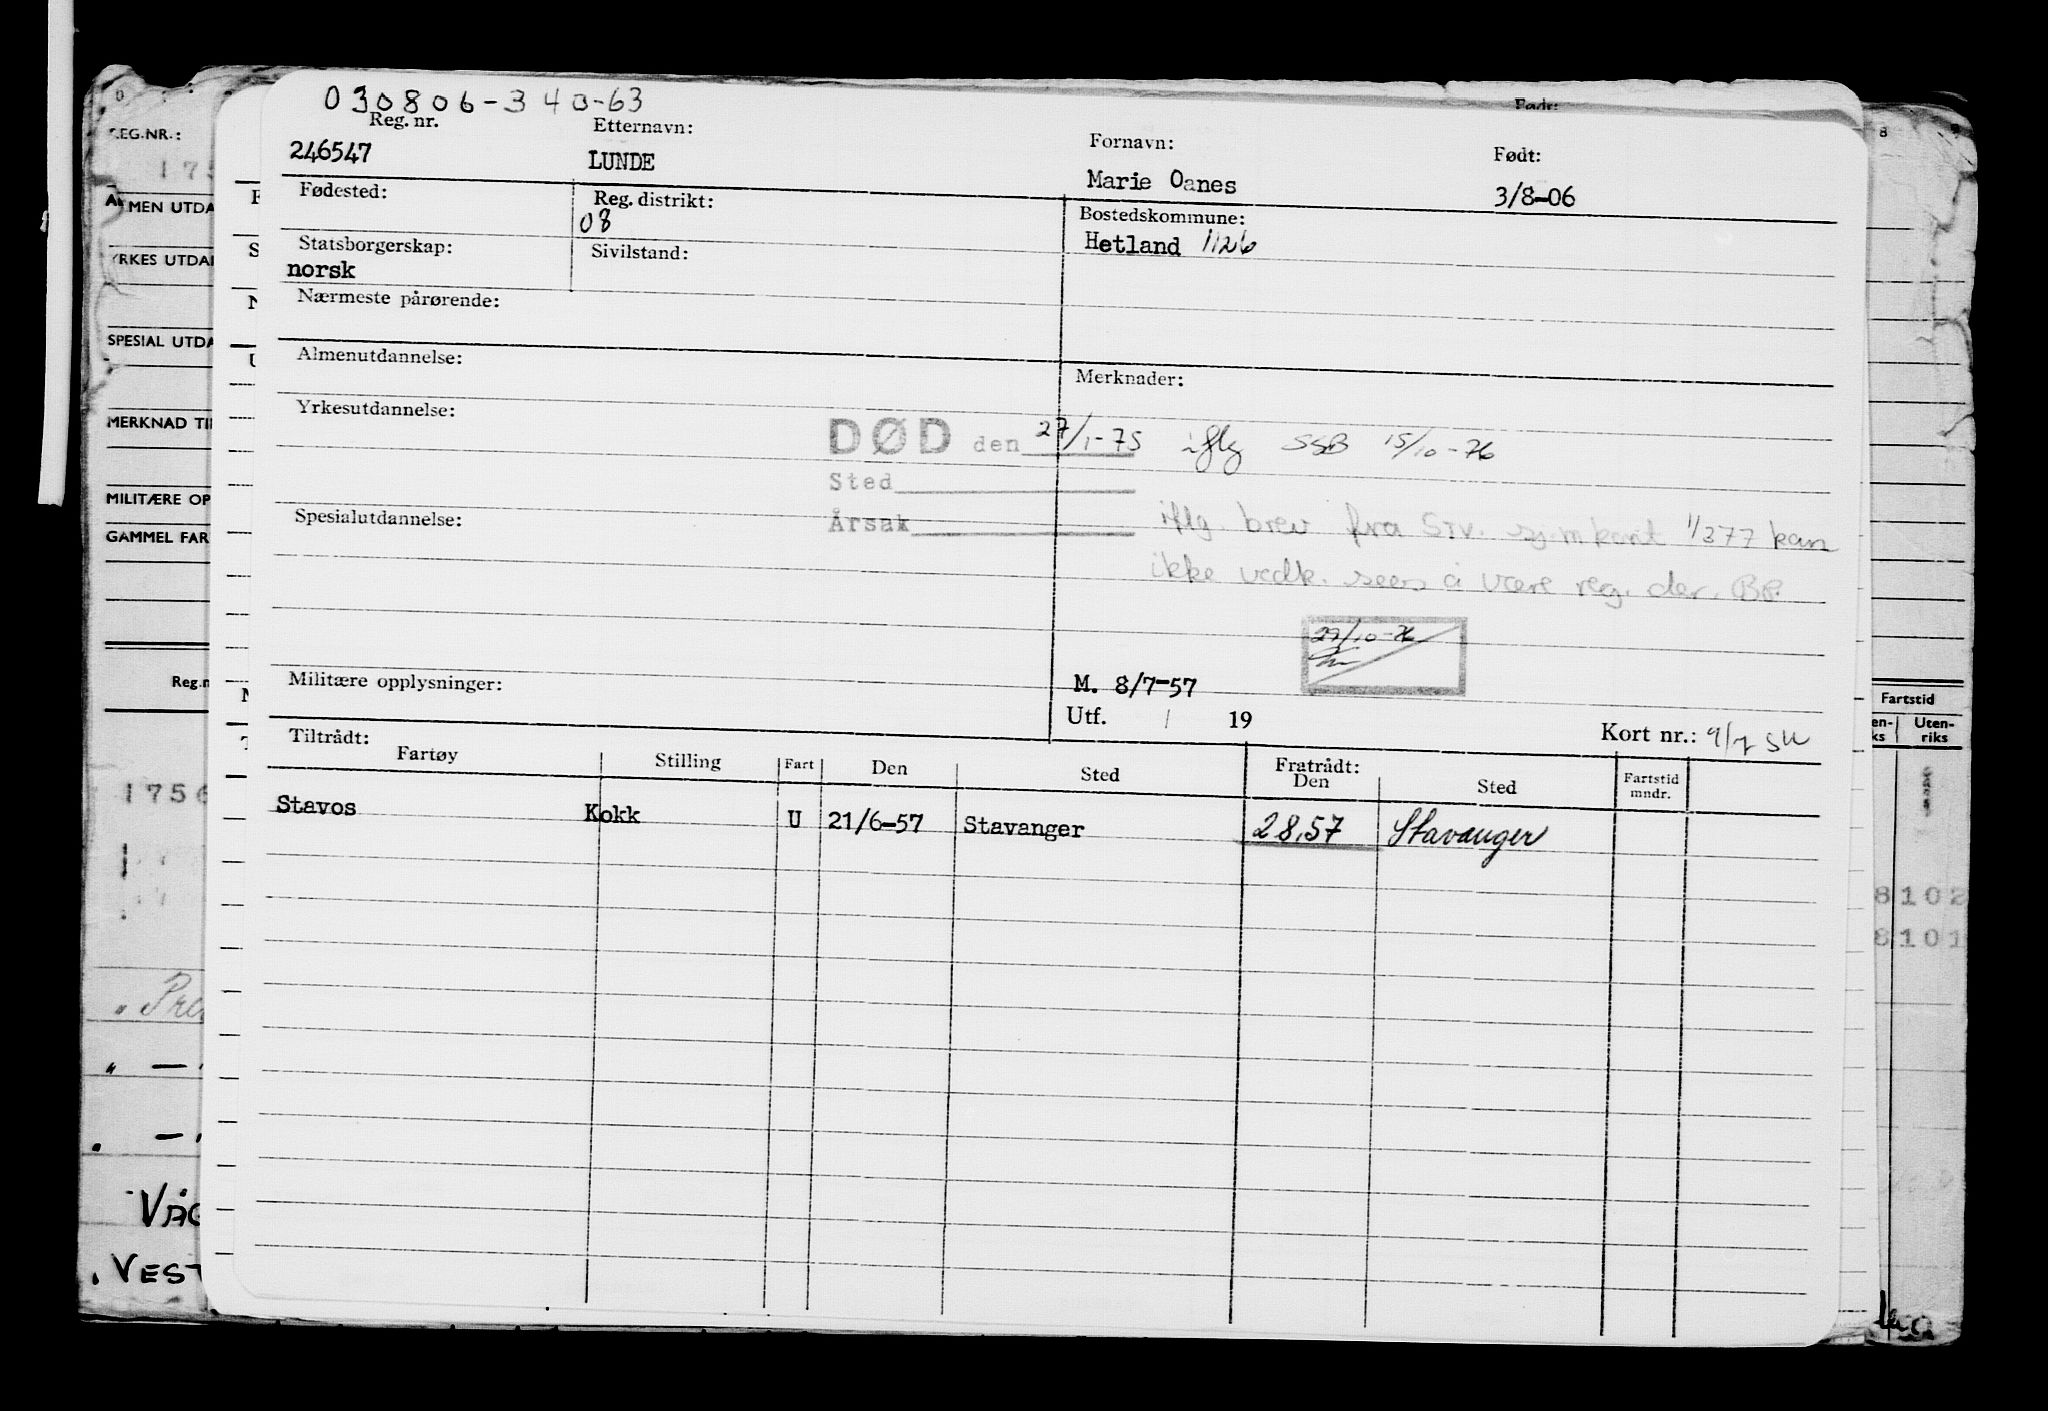 030806-340-63
Reg. nr. Etternavn: Fornavn: Født:
246547 LUNDE Marie Oanes 3/8-06
Fødested: Reg. distrikt: Bostedskommune:
08 Hetland 1126
Statsborgerskap: Sivilstand:
norsk
Nærmeste pårørende:
Almenutdannelse: Merknader:
Yrkesutdannelse:
DØD den 27/1-75 iflg SSB 15/10-76
Sted
Årsak
Spesialutdannelse:
iflg. brev fra Stv. sj.m kont 1/377 kan
ikke vedk. sees å være reg. der. BP.
29/10-76
Militære opplysninger: M. 8/7-57
Utf. / 19 Kort nr.: 9/7 SU
Tiltrådt: Fratrådt:
Fartøy Stilling Fart Den Sted Den Sted Fartstid mndr.
Stavos Kokk U 21/6-57 Stavanger 28.57 Stavanger
REG.NR.:
175
ALMEN UTDA
YRKES UTDA
SPESIAL UTDA
MERKNAD TI
MILITÆRE OP
GAMMEL FAR
Reg.n
1756
VÅG
VEST
Født:
8
Fartstid
en-ks Uten-riks
8102
8101